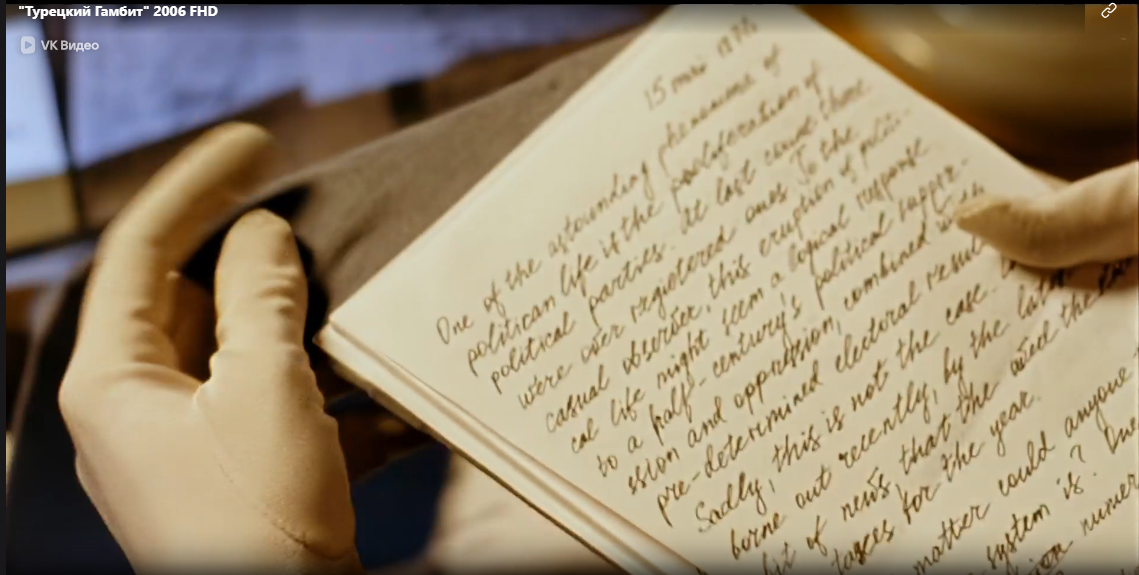 "Турецкий Гамбит" 2006 FHD
VK Видео
15 mai
One of the astounding phenomena of
politican life is the proliferation of
political parties. At last count there
were over registered ones. To the
casual observer, this eruption of politi-
cal life might seem a logical response
to a half-century's political suppre-
ssion and oppression, combined with
pre-determined electoral result
Sadly, this is not the case.
borne out recently, by the
bit of news, that the
for the year.
matter could anyone
system is?